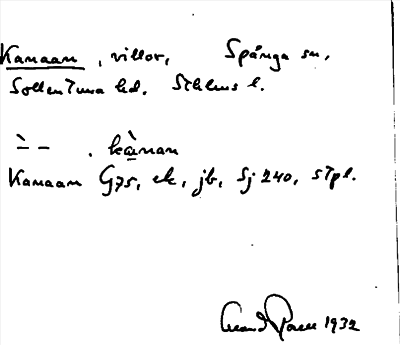 Kanaan, villor, Spånga sn,
Sollentuna hd. Sthlms l.
̀ – – . kànan
Kanaan G75, ek, jb, Sj 240, stpl.
1932